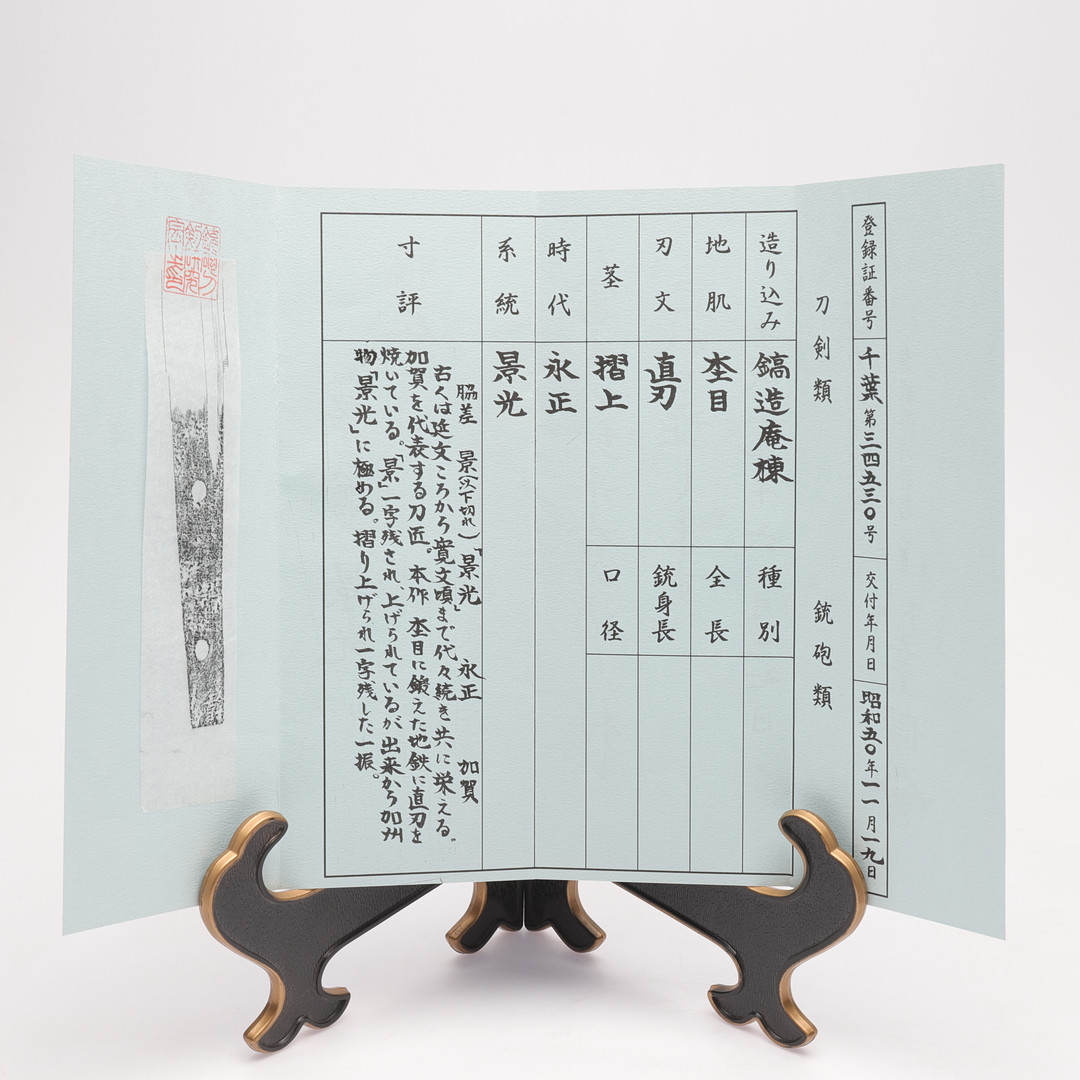 登録証番号 千葉 第三四五三〇号 交付年月日 昭和五〇年一一月一九日
刀剣類 銃砲類
造り込み 鎬造庵棟 種別
地肌 杢目 全長
刃文 直刃 銃身長
茎 摺上 口径
時代 永正
系統 景光
寸評
脇差 景(以下切れ)「景光」 永正 加賀
古くは延文ころから寛文頃まで代々続き共に栄える。
加賀を代表する刀匠。本作 杢目に鍛えた地鉄に直刃を
焼いている。「景」一字残され、上げられているが出来から加州
物「景光」に極める。摺り上げられ一字残した一振。